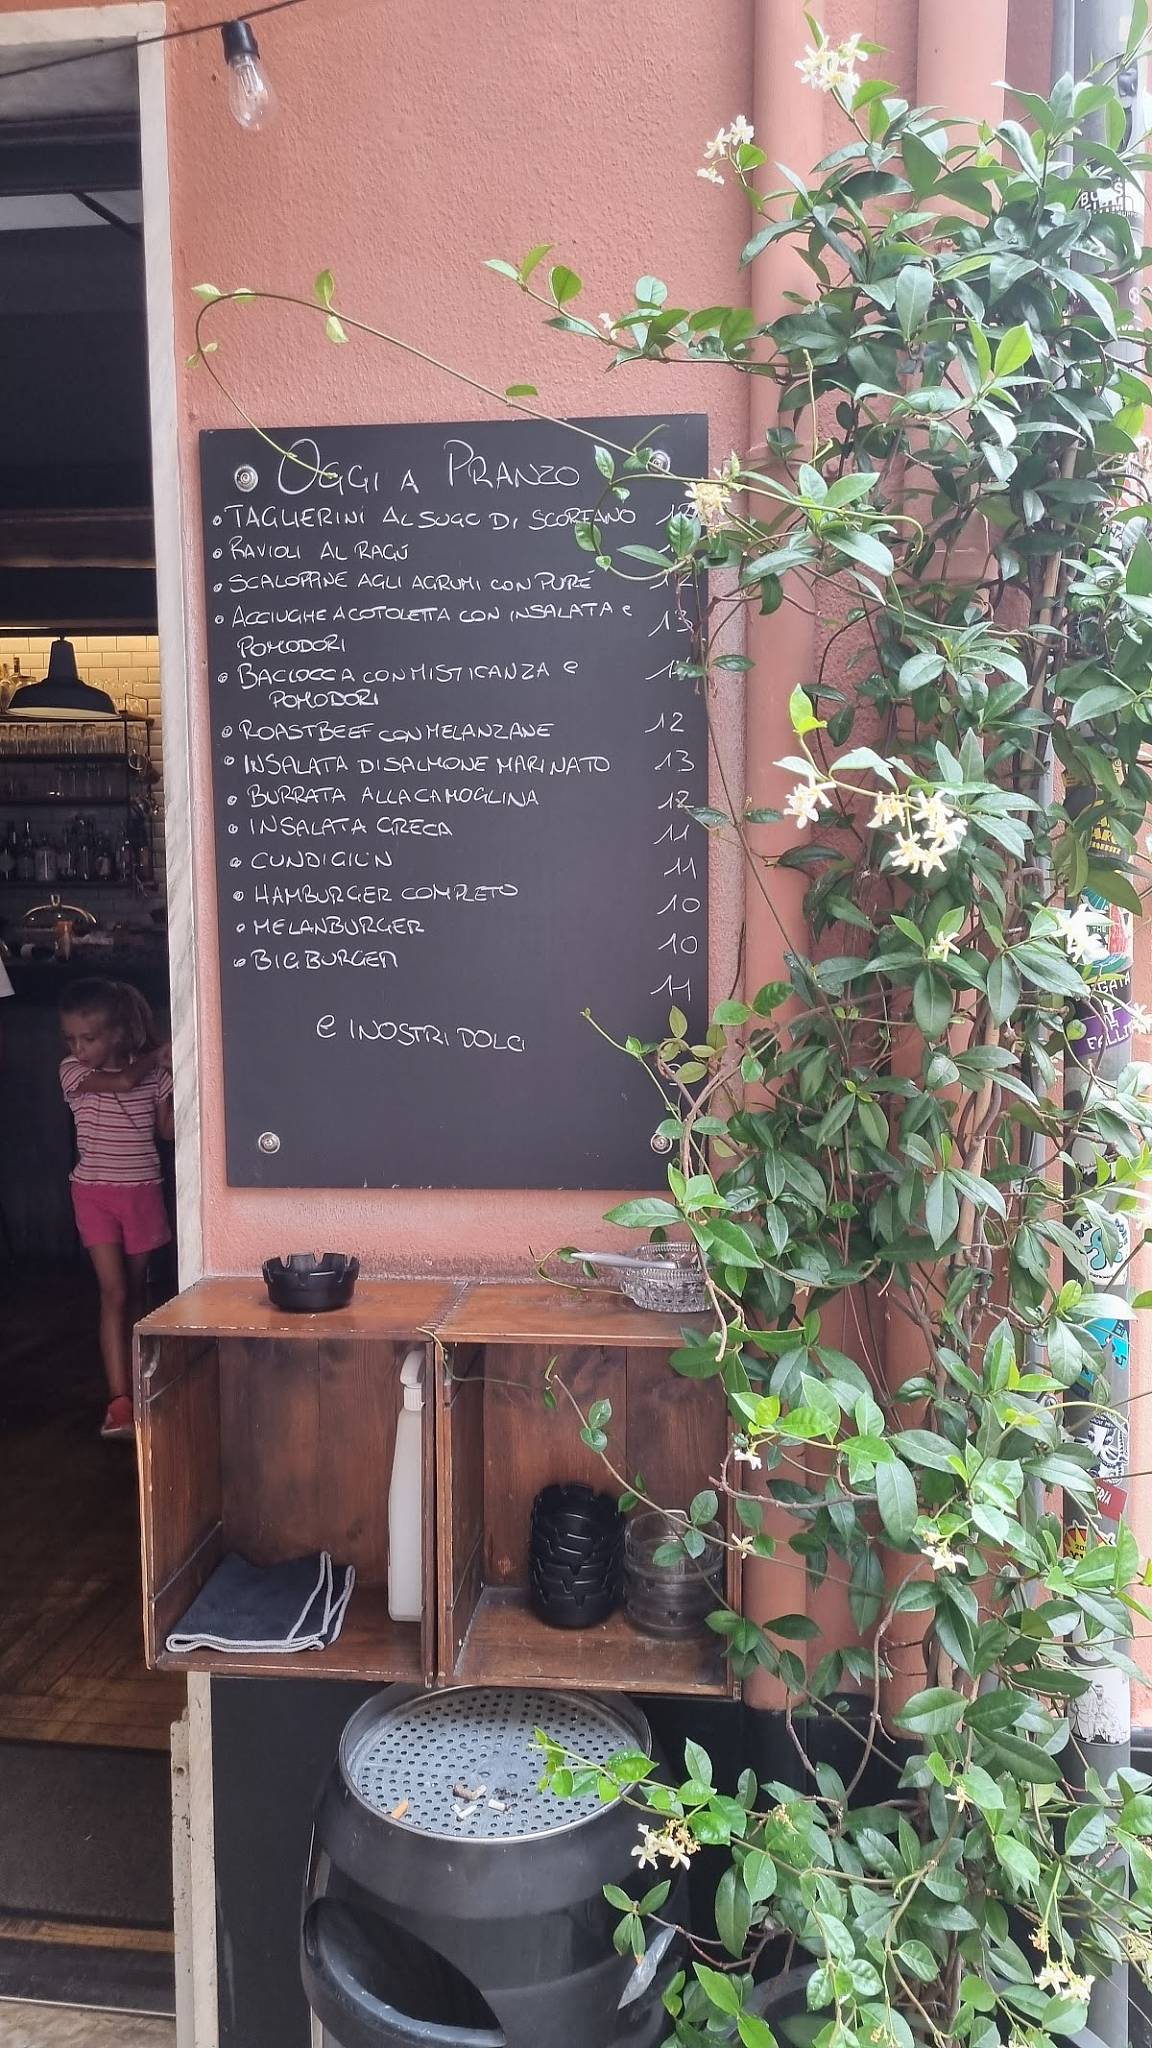 OGGI A PRANZO
• TAGLIERINI AL SUGO DI SCORFANO
• RAVIOLI AL RAGÚ
• SCALOPPINE AGLI AGRUMI CON PURÉ 12
• ACCIUGHE A COTOLETTA CON INSALATA e 13
POMODORI
• BACIOCCA CON MISTICANZA e
POMODORI
• ROASTBEEF CON MELANZANE 12
• INSALATA DI SALMONE MARINATO 13
• BURRATA ALLA CAMOGLINA 12
• INSALATA GRECA 11
• CUNDIGIUN 11
• HAMBURGER COMPLETO 10
• MELANBURGER 10
• BIG BURGER 11
e I NOSTRI DOLCI